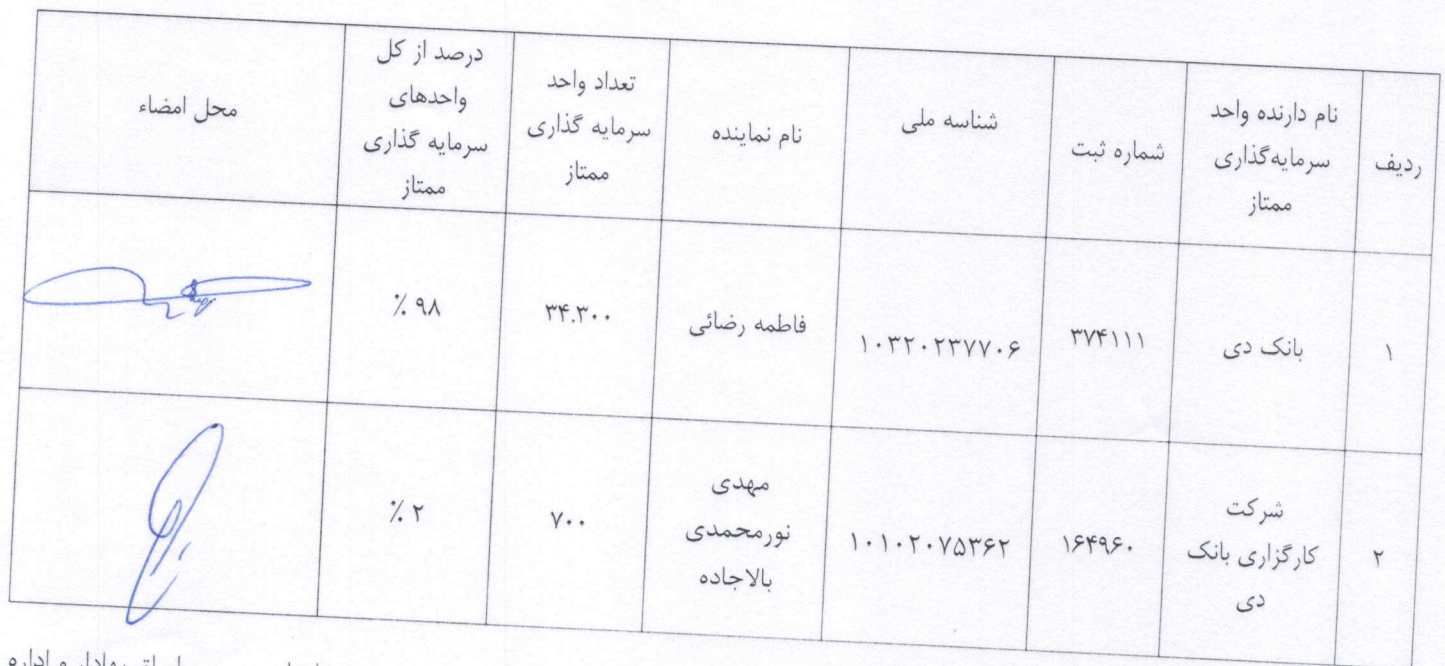 ردیف
نام دارنده واحد
سرمایه‌گذاری
ممتاز
شماره ثبت
شناسه ملی
نام نماینده
تعداد واحد
سرمایه گذاری
ممتاز
درصد از کل
واحدهای
سرمایه گذاری
ممتاز
محل امضاء
۱
بانک دی
۳۷۴۱۱۱
۱۰۳۲۰۲۳۷۷۰۶
فاطمه رضائی
۳۴.۳۰۰
۹۸ ٪
۲
شرکت
کارگزاری بانک
دی
۱۶۴۹۶۰
۱۰۱۰۲۰۷۵۳۶۲
مهدی
نورمحمدی
بالاجاده
۷۰۰
۲ ٪